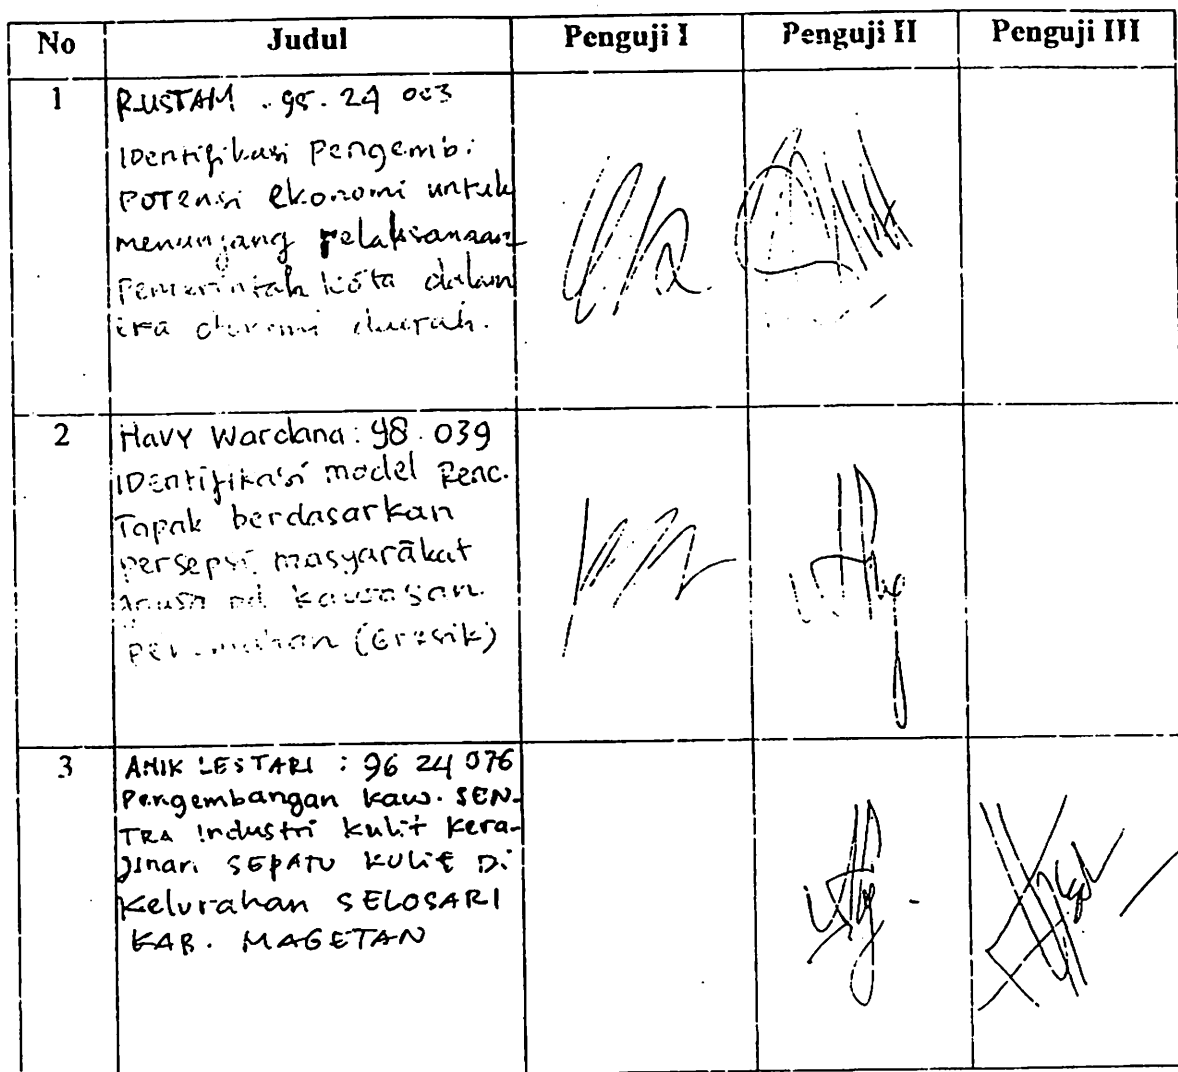 No Judul Penguji I Penguji II Penguji III
1 RUSTAM . 95. 24 003
IDentifikasi Pengemb.
POTensi ekonomi untuk
menunjang pelaksanaan
Pemerintah kota dalam
era daerah.
2 Havy Wardana : 98. 039
IDentifikasi model Renc.
Tapak berdasarkan
persepsi masyarakat
kawasan
(Gresik)
3 ANIK LESTARI : 96 24 076
Pengembangan kaw. SEN-
TRA Industri kulit kera-
jinan SEPATU KULIt Di
Kelurahan SELOSARI
KAB. MAGETAN